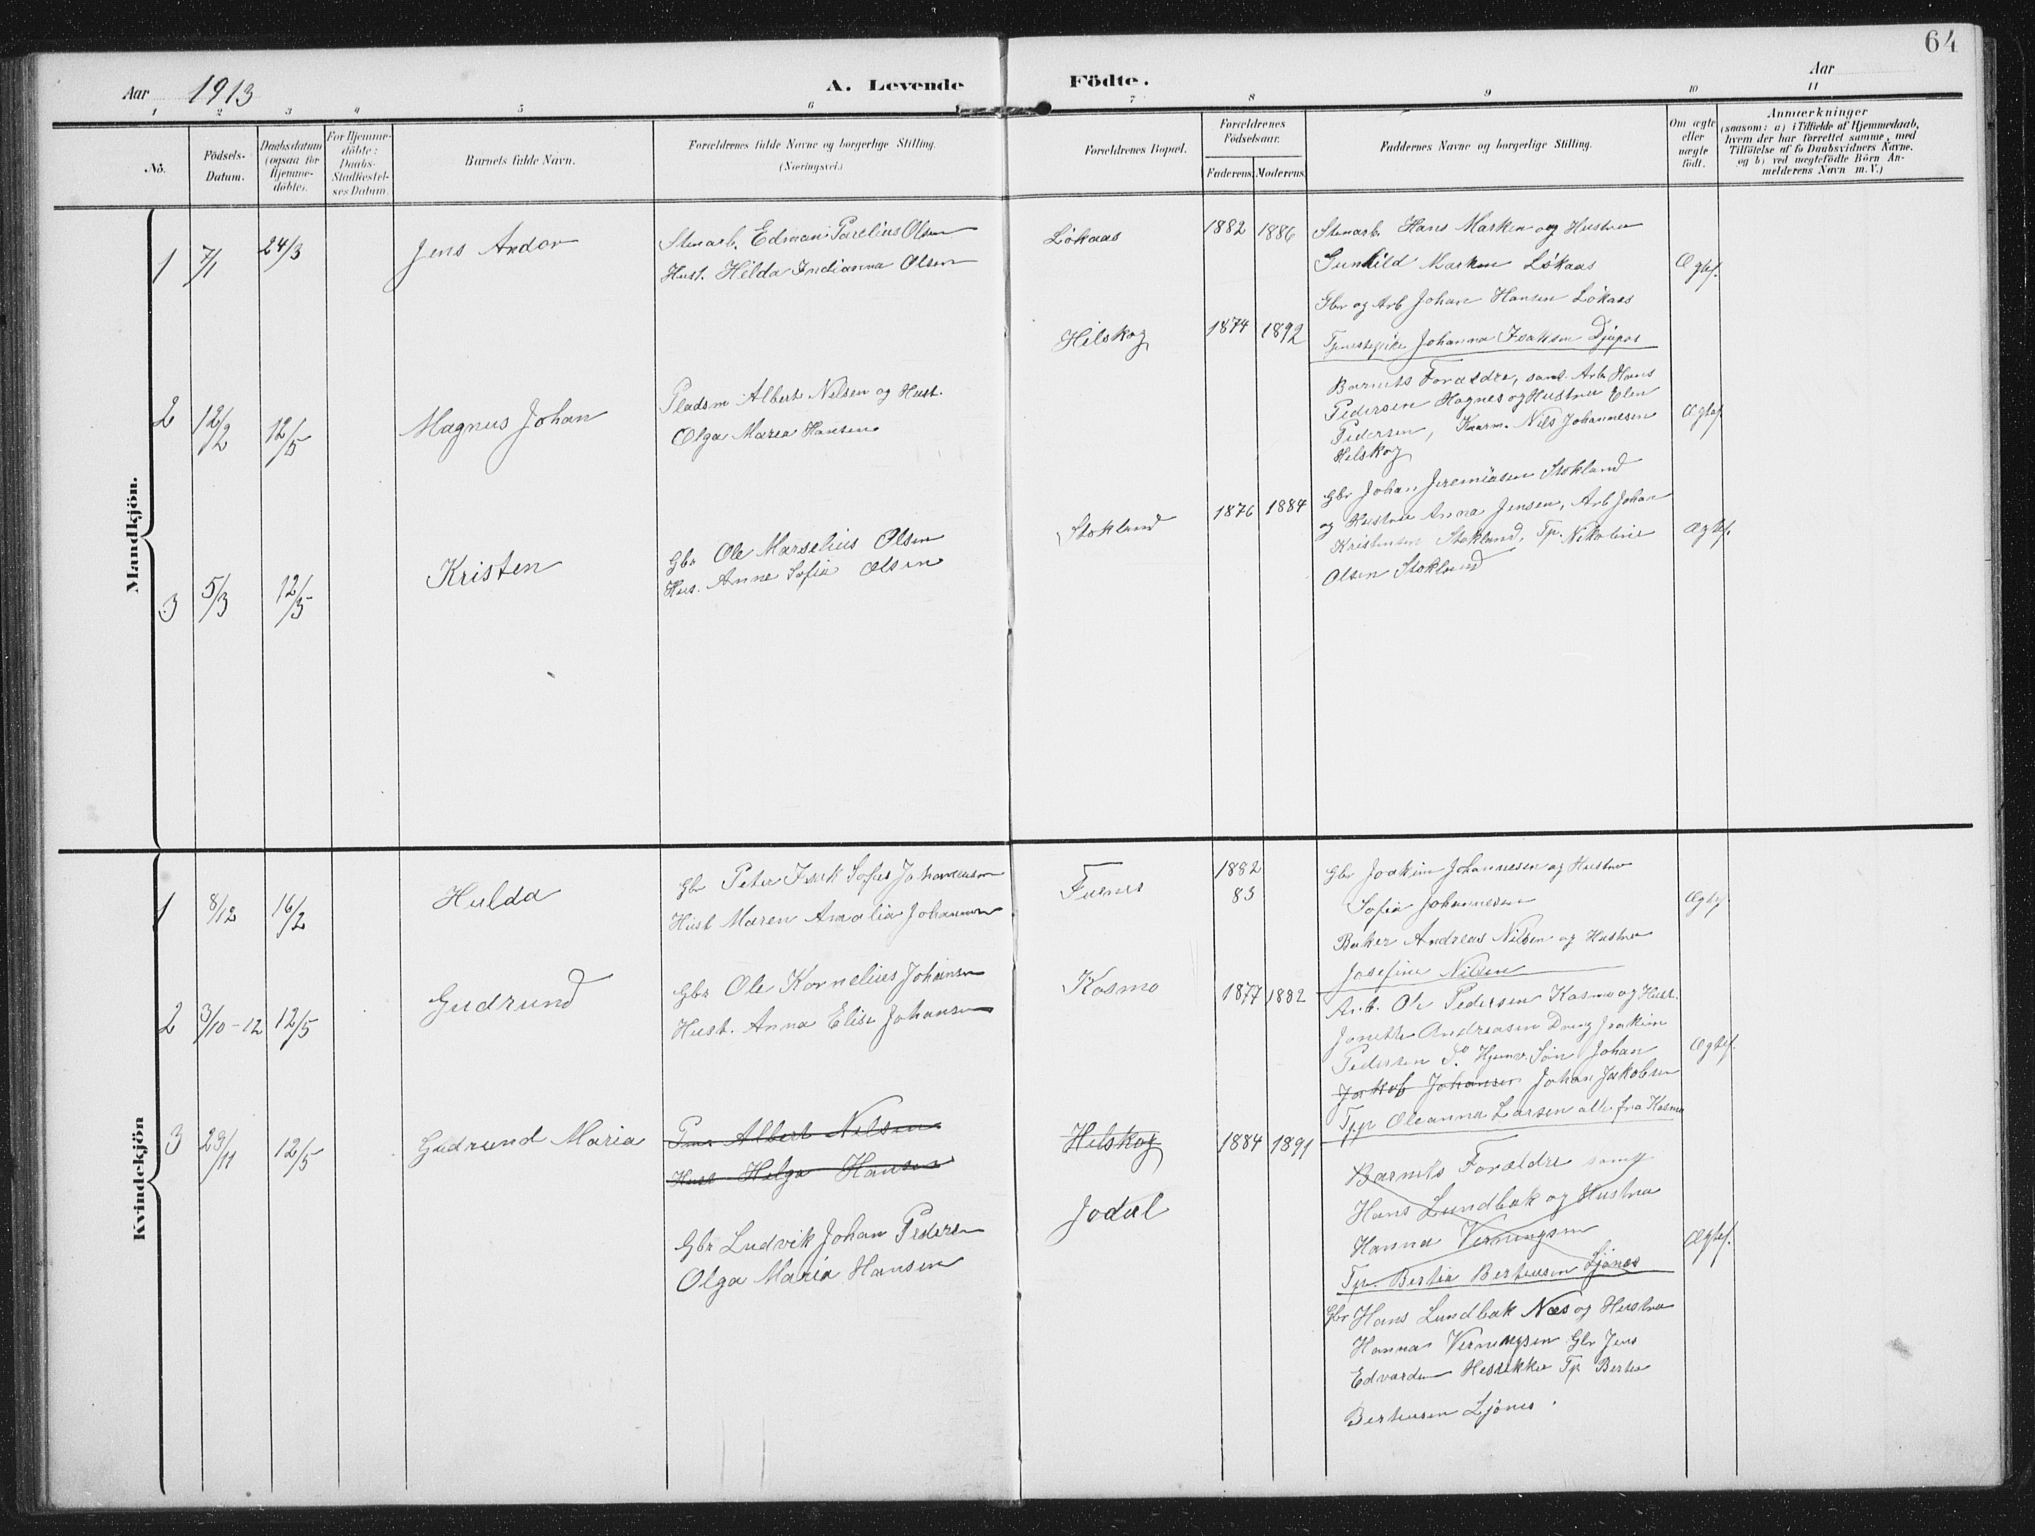 64
Aar 1913
A. Levende Födte.
Aar
1 2 3 4 5 6 7 8 9 10 11
No.
Födsels-Datum.
Daabsdatum (ogsaa for Hjemme-döbte).
For Hjemme-döbte: Daabs-Stadfæstel-ses Datum.
Barnets fulde Navn.
Forældrenes fulde Navne og borgerlige Stilling.
(Næringsvei.)
Forældrenes Bopæl.
Forældrenes Födselsaar.
Faderens. Moderens.
Faddernes Navne og borgerlige Stilling.
Om ægte eller uægte födt.
Anmærkninger
(saasom: a) i Tilfælde af Hjemmedaab,
hvem der har forrettet samme, med
Tilföielse af to Daabsvidners Navne.
og b) ved uægtefödte Börn An-
melderens Navn m. V.)
Mandkjön.
1 7/1 24/3 Jens Andor
Stenarb. Edman Parelius Olsen
Hust. Hilda Indianna Olsen
Lökaas
1882 1886
Stenarb Hans Marken og Hustru
Gunhild Marken Lökaas
Gbr og Arb Johan Hansen Lökaas
Johanna Isaksen Djupos
Ægtef.
2 12/2 12/5 Magnus Johan
Pladsm Albert Nilsen og Hust.
Olga Maria Hansen
Hilskog
1874 1892
Barnets Forældre, samt Arb Hans
Pedersen Hognes og Hustru Elen
Pedersen, Kaarm. Nils Johannesen
Helskog
Ægtef
3 5/3 12/5 Kristen
Gbr Ole Marselius Olsen
Hus. Anne Sofia Olsen
Stokland
1876 1884
Gbr Johan Jeremiasen Stokland
og Hustru Anna Jensen, Arb Johan
Kristensen Stokland, Tp. Nikoline
Olsen Stokland
Ægtef.
Kvindekjön
1 8/12 16/2 Hulda
Gbr Peter Johannesen
Hust Maren Amalia Johannesen
Fuenes
1882
83
Gbr Joakim Johannesen og Hustru
Sofia Johannesen
Baker Andreas Nilsen og Hustru
Josefine Nilsen
Ægtef
2 3/10-12 12/5 Gudrund
Gbr Ole Kornelius Johansen
Hust. Anna Elise Johansen
Kosmo
1877 1882
Arb. Ole Pedersen Kosmo og Hust.
Jonette Andreasen Dreng Joakim
Pedersen So Hjemv. Sön Johan
Jakob Johansen Johan Jakobsen
Tpp Oleanna Larsen alle fra Kosmo
Ægtef.
3 23/11 12/5 Gudrund Maria
Albert Nilsen
Hust Helga Hansen
Gbr Ludvik Johan Pedersen
Olga Maria Hansen
Helskog
Jodal
1884 1891
Barnets Forældre samt
Hans Lundbak og Hustru
Hanna Verningsen
Tp. Bertia Berteusen Ljönes
Gbr Hans Lundbak Næs og Hustru
Hanna Verningsen Gbr Jens
Edvardsen Hestekke Tp Bertea
Berteusen Ljönes.
Ægtef.